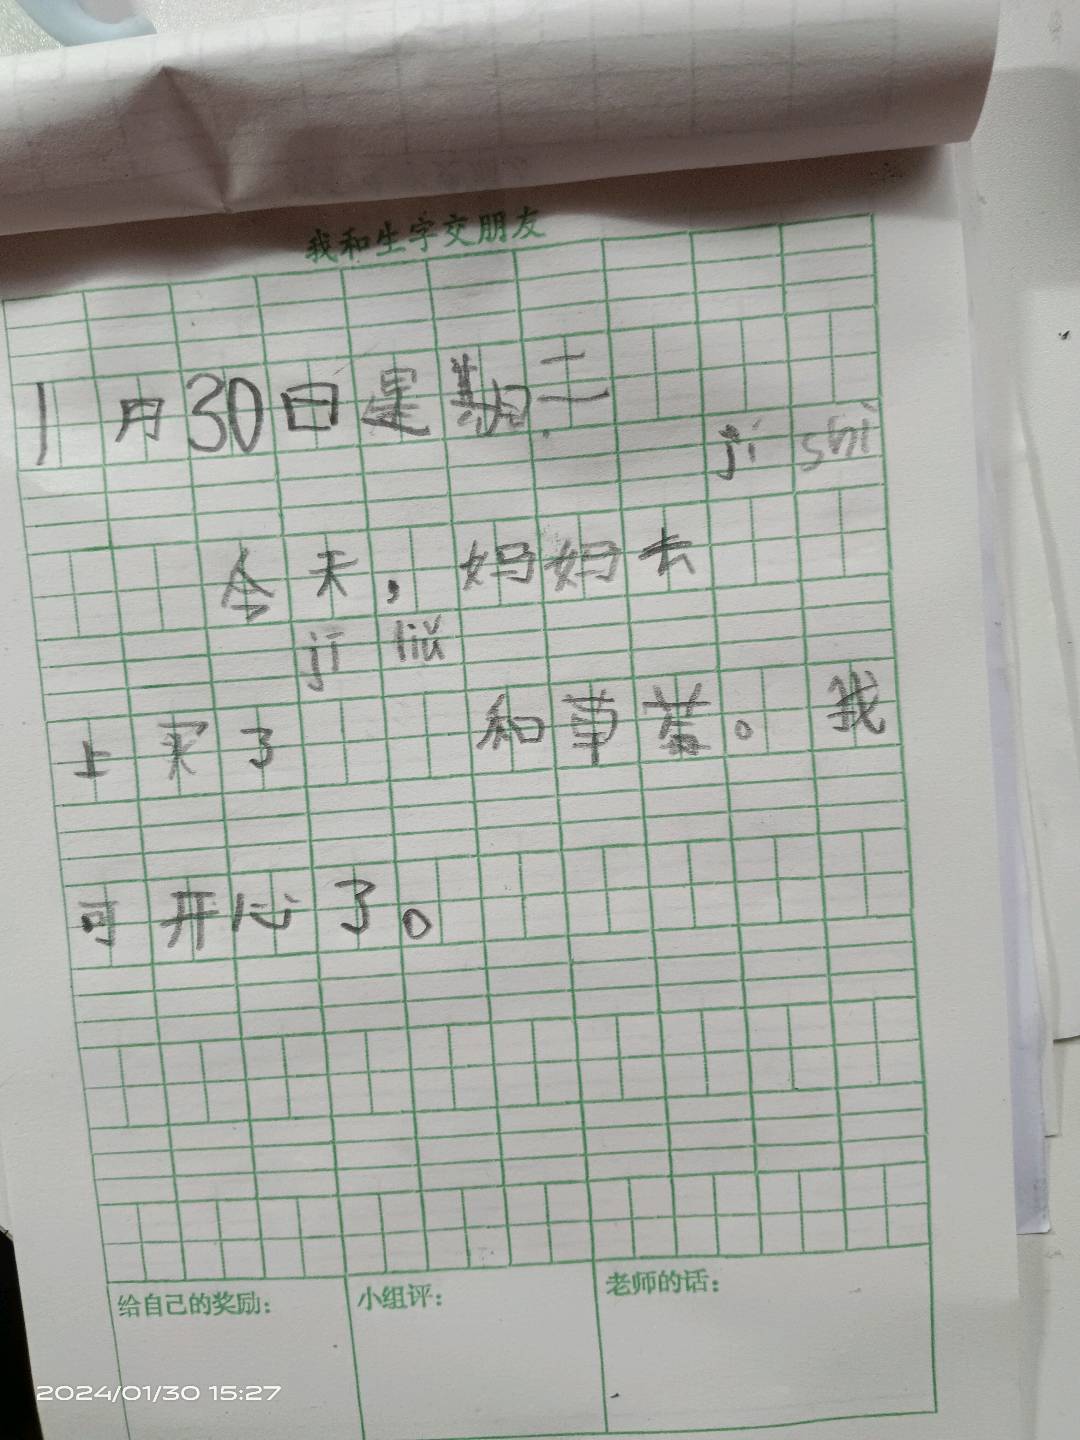 我和生字交朋友
1月30日星期二
jí shì
今天，妈妈去
jī liǔ
上买了 和草莓。我
可开心了。
给自己的奖励： 小组评： 老师的话：
2024/01/30 15:27